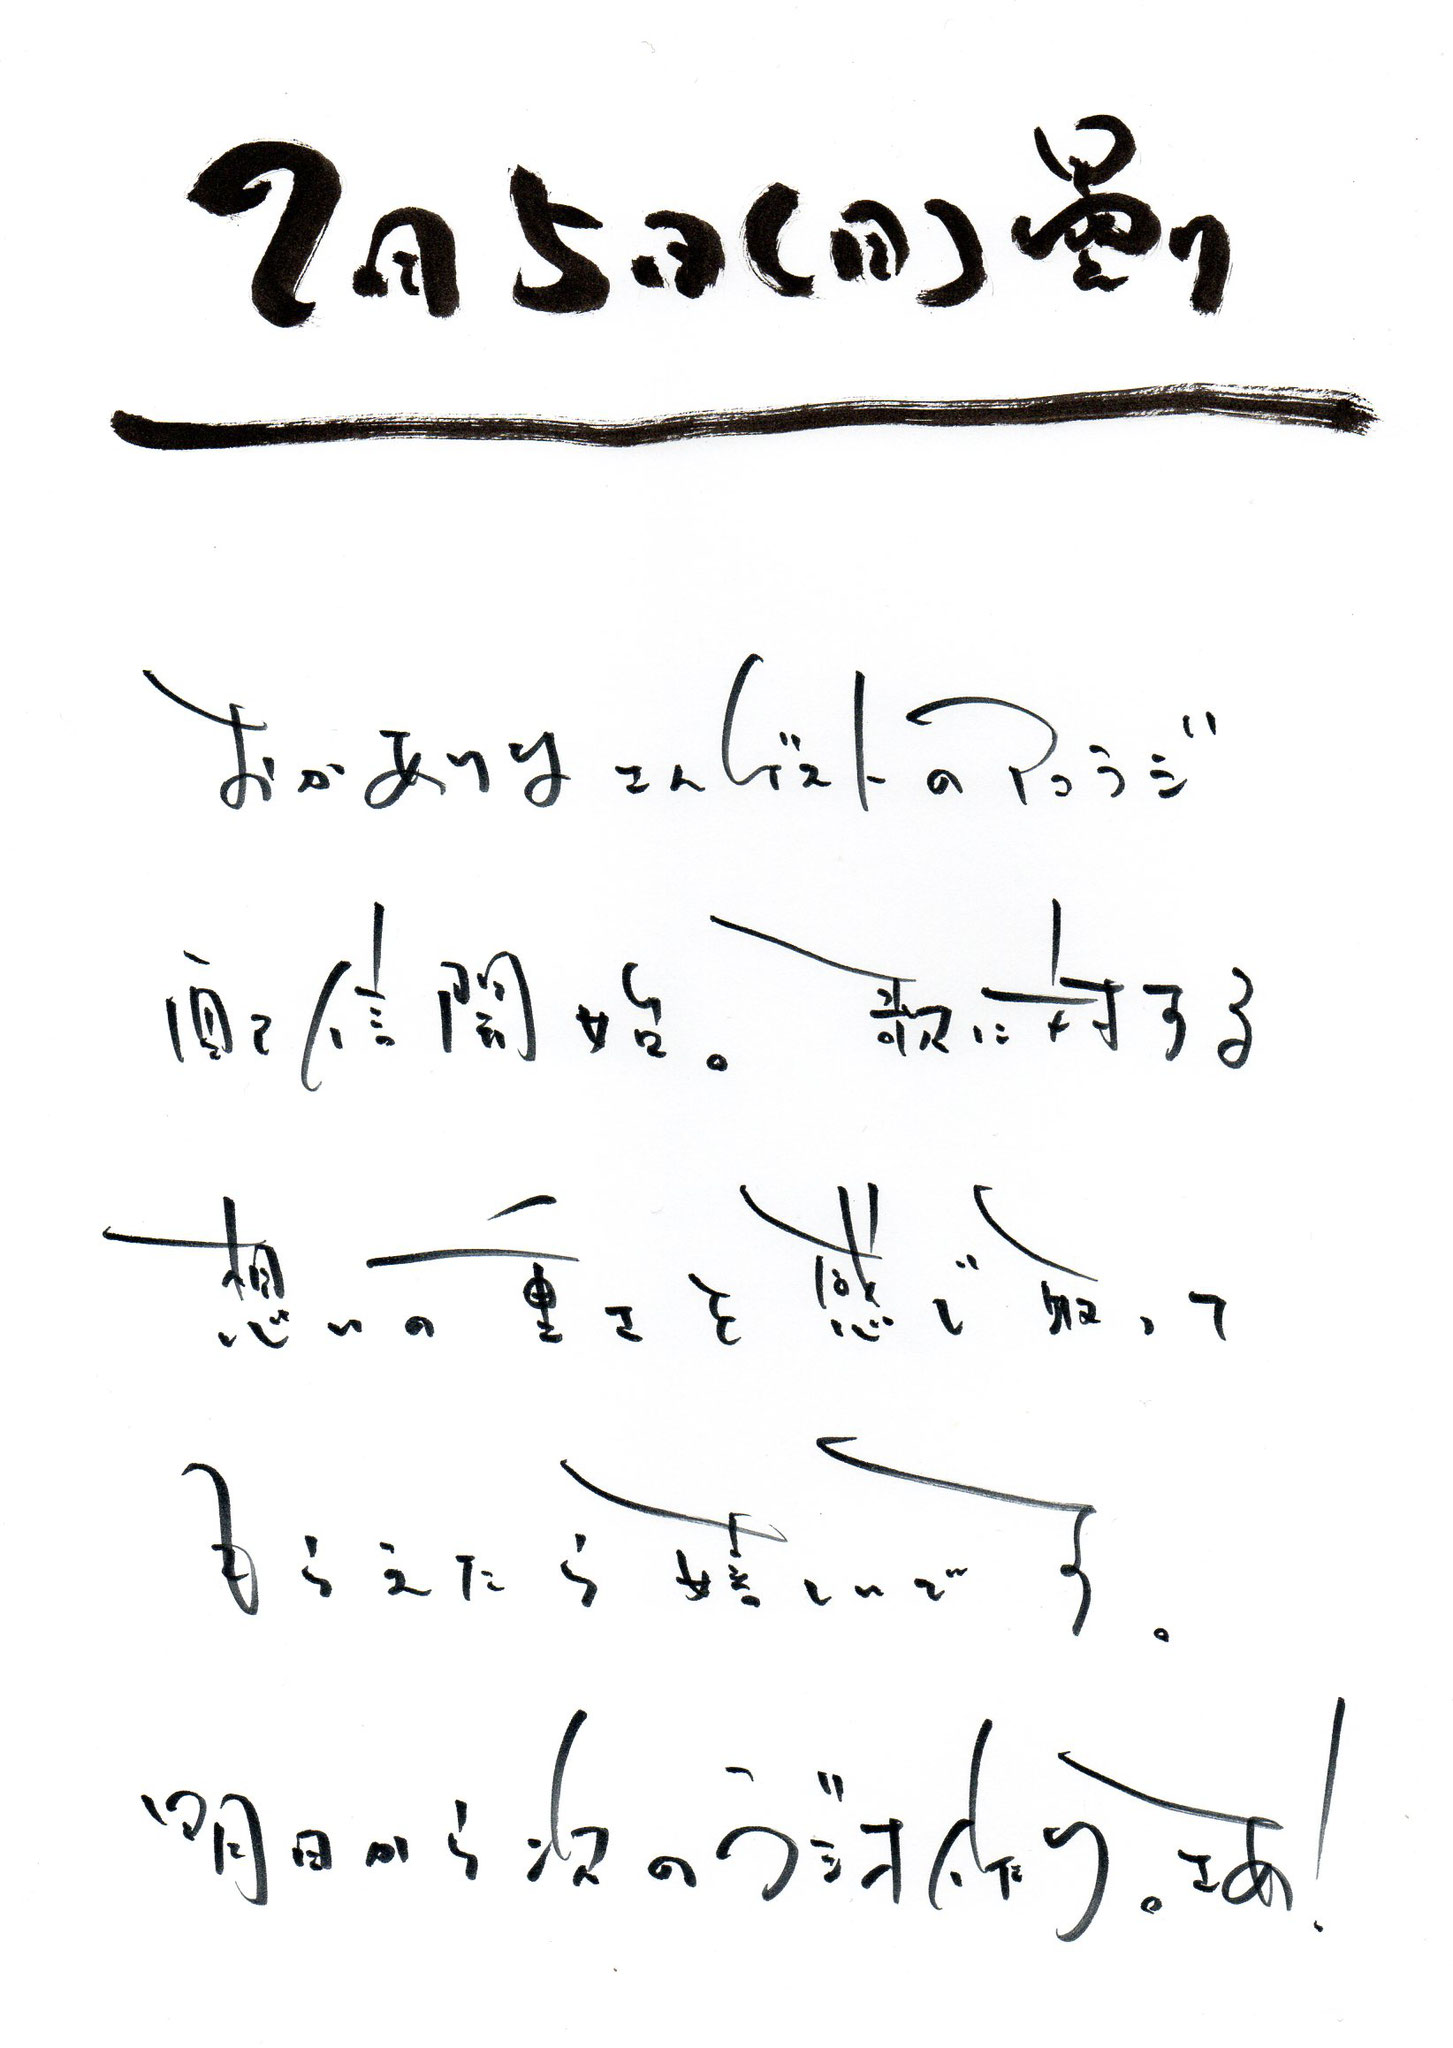 7月5日(月)曇り
おかありなさんゲストのアコラジ
配信開始。歌に対する
想いの重さを感じ取って
もらえたら嬉しいです。
明日から次のラジオ作り。さあ!